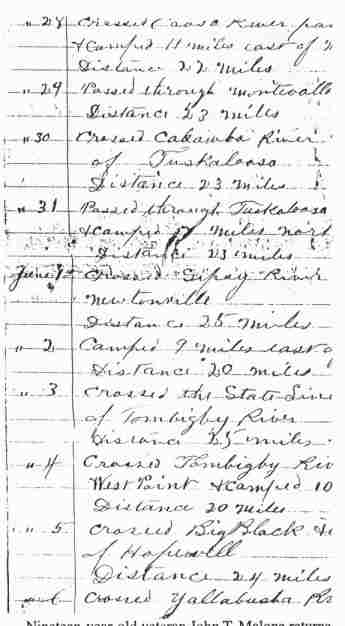 " 28 Crossed Coosa River
& Camped 11 miles east of
Distance 22 miles
" 29 Passed through Montevallo
Distance 23 miles
" 30 Crossed Cabamba River
of Tuskaloosa
Distance 23 miles
" 31 Passed through Tuskaloosa
& Camped 17 miles nort
Distance 23 miles
June 1st Crossed Sipsy River
Newtonville
Distance 25 miles
" 2 Camped 9 miles east o
Distance 20 miles
" 3 Crossed the State Line
of Tombigby River
Distance 25 miles
" 4 Crossed Tombigby Riv
West Point & Camped 10
Distance 20 miles
" 5 Crossed Big Black
of Hopewell
Distance 24 miles
" 6 Crossed Yallabusha
Nineteen-year-old veteran John T. Malone returns